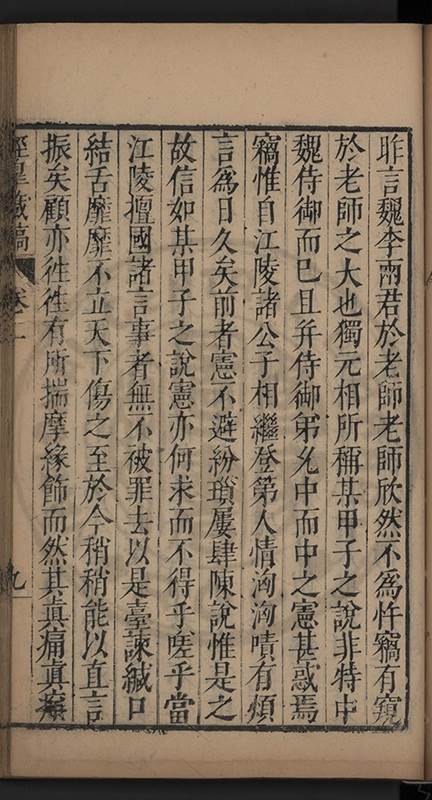 昨言魏李兩君於老師老師欣然不為忤竊有窺
於老師之大也獨元相所稱某甲子之說非特中
魏侍御而已且并侍御弟允中而中之憲甚惑焉
竊惟自江陵諸公子相繼登第人情洶洶嘖有煩
言為日久矣前者憲不避紛瑣屢肆陳說惟是之
故信如某甲子之說憲亦何求而不得乎嗟乎當
江陵擅國諸言事者無不被罪去以是臺諫緘口
結舌靡靡不立天下傷之至於今稍稍能以直言
振矣顧亦徃徃有所揣摩緣飾而然其真痛真癢
涇臯藏稿 卷二 九